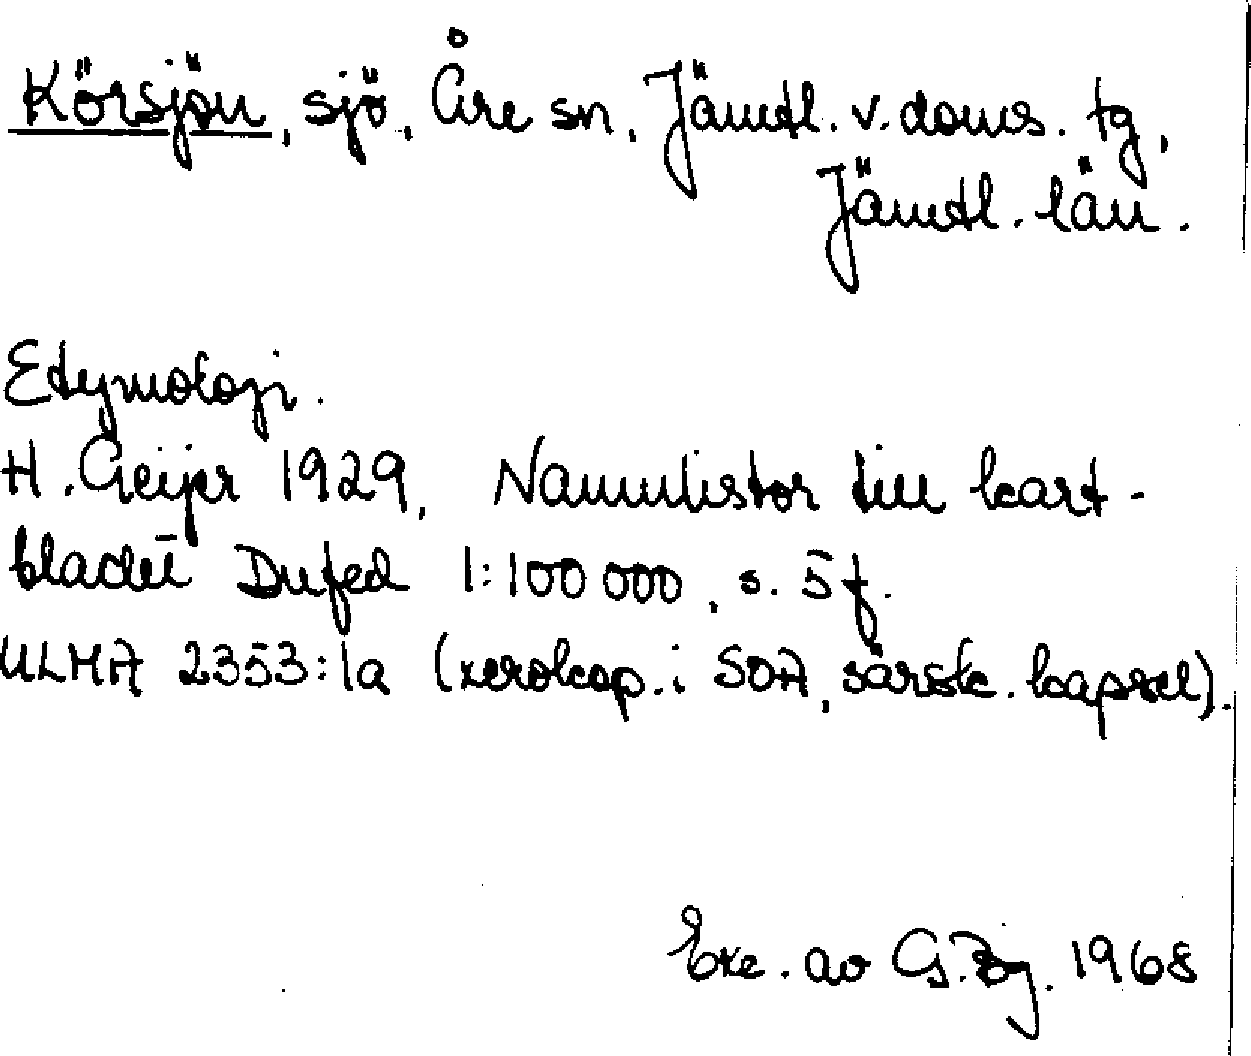 Körsjön, sjö, Åre sn, Jämtl. v. doms. tg,
Jämtl. län.
Etymologi.
H. Geijer 1929, Namnlistor till kart-
bladet Dufed 1:100 000, s. 5 f.
ULMA 2353:1a (xerokop. i SOA, särsk. kapsel).
Exc. av G. Bg. 1968